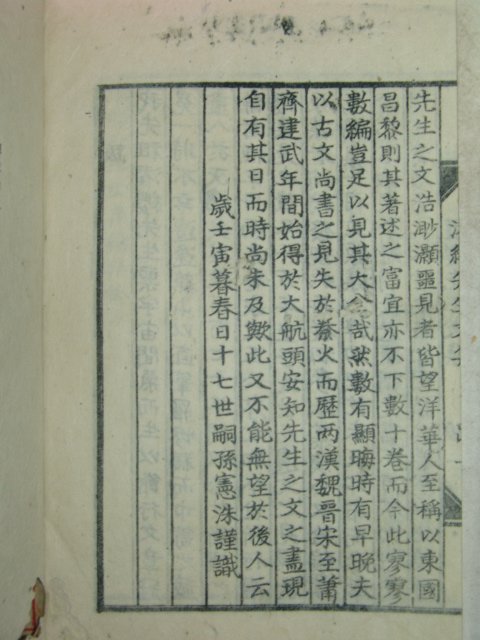 先生之文浩渺灝噩見者皆望洋華人至稱以東國
昌黎則其著述之富宜亦不下數十卷而今此寥寥
數編豈足以見其大全哉然數有顯晦時有早晩夫
以古文尚書之見失於秦火而歷两漢魏晉宋至蕭
齊建武年間始得於大航頭安知先生之文之盡現
自有其日而時尚未及歟此又不能無望於後人云
歲壬寅暮春日十七世嗣孫憲洙謹識